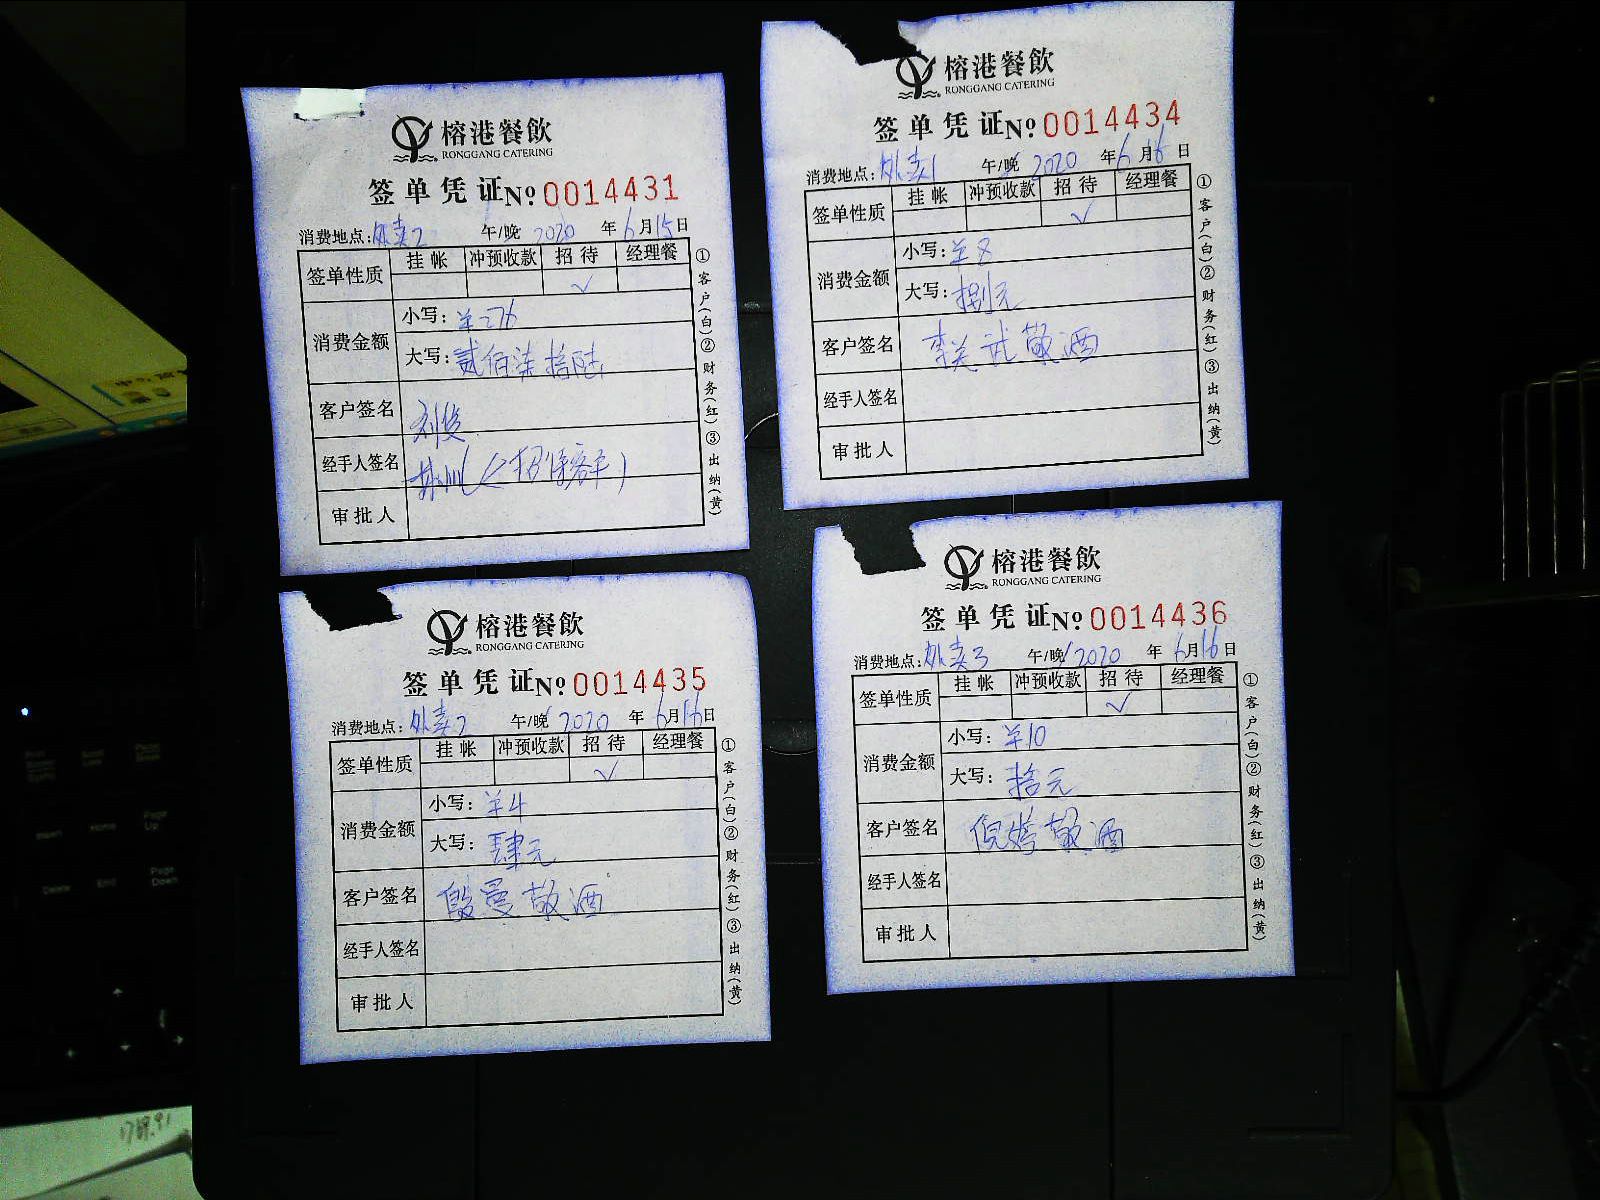 榕港餐飲
RONGGANG CATERING
签单凭证№0014431
消费地点:外卖2 午/晚 2020年6月15日
签单性质 挂帐 冲预收款 招待 经理餐
✓
消费金额 小写:¥276
大写:贰佰柒拾陆
客户签名
经手人签名
审批人
①客户(白)②财务(红)③出纳(黄)
榕港餐飲
RONGGANG CATERING
签单凭证№0014434
消费地点:外卖1 午/晚 2020年6月16日
签单性质 挂帐 冲预收款 招待 经理餐
✓
消费金额 小写:¥8
大写:捌元
客户签名 敬酒
经手人签名
审批人
①客户(白)②财务(红)③出纳(黄)
榕港餐飲
RONGGANG CATERING
签单凭证№0014435
消费地点:外卖2 午/晚 2020年6月16日
签单性质 挂帐 冲预收款 招待 经理餐
✓
消费金额 小写:¥4
大写:肆元
客户签名 殷曼敬酒
经手人签名
审批人
①客户(白)②财务(红)③出纳(黄)
榕港餐飲
RONGGANG CATERING
签单凭证№0014436
消费地点:外卖3 午/晚 2020年6月16日
签单性质 挂帐 冲预收款 招待 经理餐
✓
消费金额 小写:¥10
大写:拾元
客户签名 倪婷敬酒
经手人签名
审批人
①客户(白)②财务(红)③出纳(黄)
Home
Page Up
Delete
End
Page Down